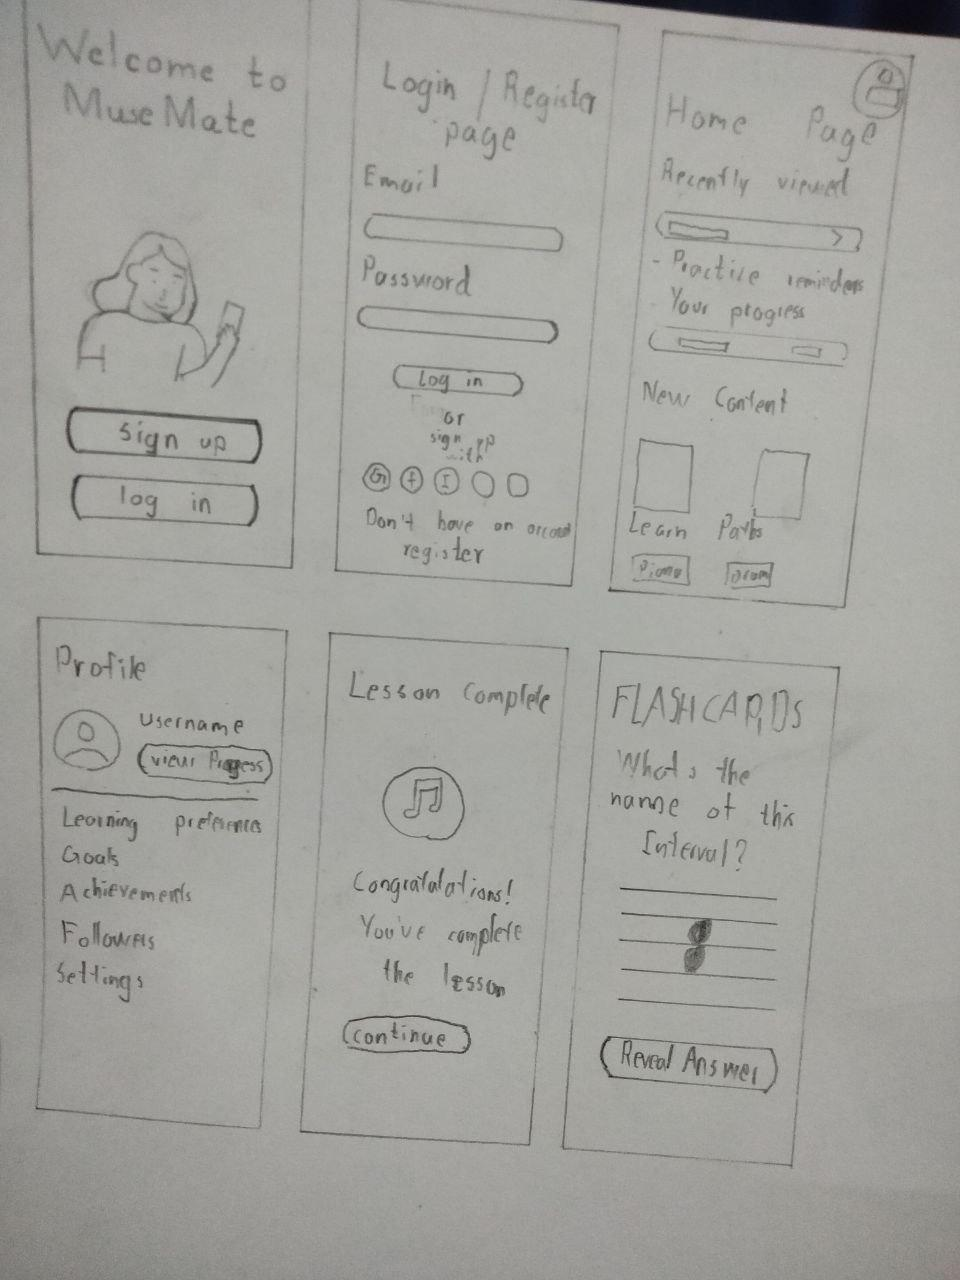 Welcome to
MuseMate
sign up
log in
Login / Register
page
Email
Password
Log in
or
sign up
with
G f I
Don't have an account
register
Home Page
Recently viewed
- Practice reminders
- Your progress
New Content
Learn Paths
Piano Drum
Profile
Username
view Progress
Learning preferences
Goals
Achievements
Followers
Settings
Lesson Complete
Congratalations!
You've complete
the lesson
Continue
FLASHCARDS
What's the
name of this
Interval?
Reveal Answer